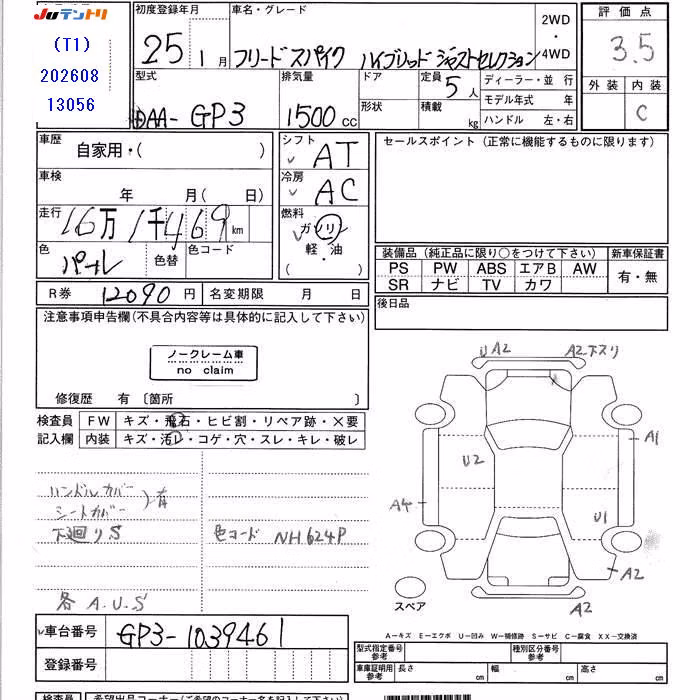 JUテントリ
(T1)
202608
13056
初度登録年月
25 1月
車名・グレード
フリードスパイク ハイブリッド ジャストセレクション
2WD
・
4WD
評価点
3.5
外装 内装
C
型式
DAA-GP3
排気量
1500cc
ドア
形状
定員 5人
積載 kg
ディーラー・並 行
モデル年式 年
ハンドル 左・右
車歴
自家用・( )
車検
年 月(日)
走行
16万1千469km
色
パール
色替
色コード
シフト
AT
冷房
AC
燃料
ガソリン
軽・油
( )
R券 12090円
名変期限 月 日
セールスポイント(正常に機能するものに限ります)
装備品(純正品に限り○をつけて下さい)
PS PW ABS エアB AW
SR ナビ TV カワ
新車保証書
有・無
後日品
注意事項申告欄(不具合内容等は具体的に記入して下さい)
ノークレーム車
no claim
修復歴 有〔箇所 〕
検査員
記入欄
FW キズ・飛石・ヒビ割・リペア跡・×要
内装 キズ・汚レ・コゲ・穴・スレ・キレ・破レ
ハンドルカバー
シートカバー
)有
下廻りS
色コード NH624P
各A.U.S
車台番号 GP3-1039461
登録番号
U A2
A2 下スリ
A1
U2
A4
U1
A2
A2
スペア
A-キズ E-エクボ U-凹み W-補修跡 S-サビ C-腐食 XX-交換済
型式指定番号
参考
種別区分番号
参考
車庫証明用
参考
長さ 幅 高さ
cm
検査員
希望出品コーナー(ご希望のコーナー名を記入下さい)